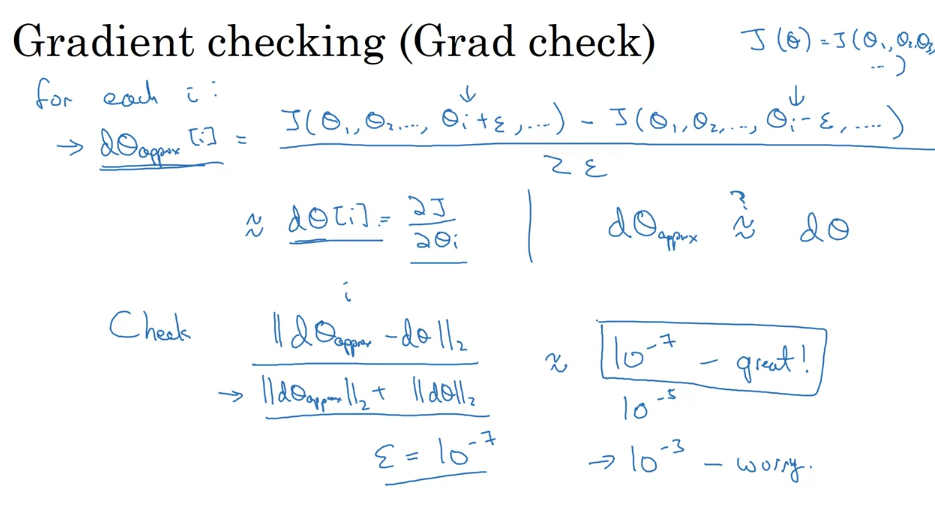 Gradient checking (Grad check)
J(θ) = J(θ₁, θ₂, θ₃, ...)
for each i:
→ dθapprox[i] = (J(θ₁, θ₂, ..., θᵢ+ε, ...) - J(θ₁, θ₂, ..., θᵢ-ε, ....)) / 2ε
≈ dθ[i] = ∂J/∂θᵢ | dθapprox ≈? dθ
i
Check ||dθapprox - dθ||₂ / (||dθapprox||₂ + ||dθ||₂) ≈ 10⁻⁷ - great!
10⁻⁵
ε = 10⁻⁷ → 10⁻³ - worry.